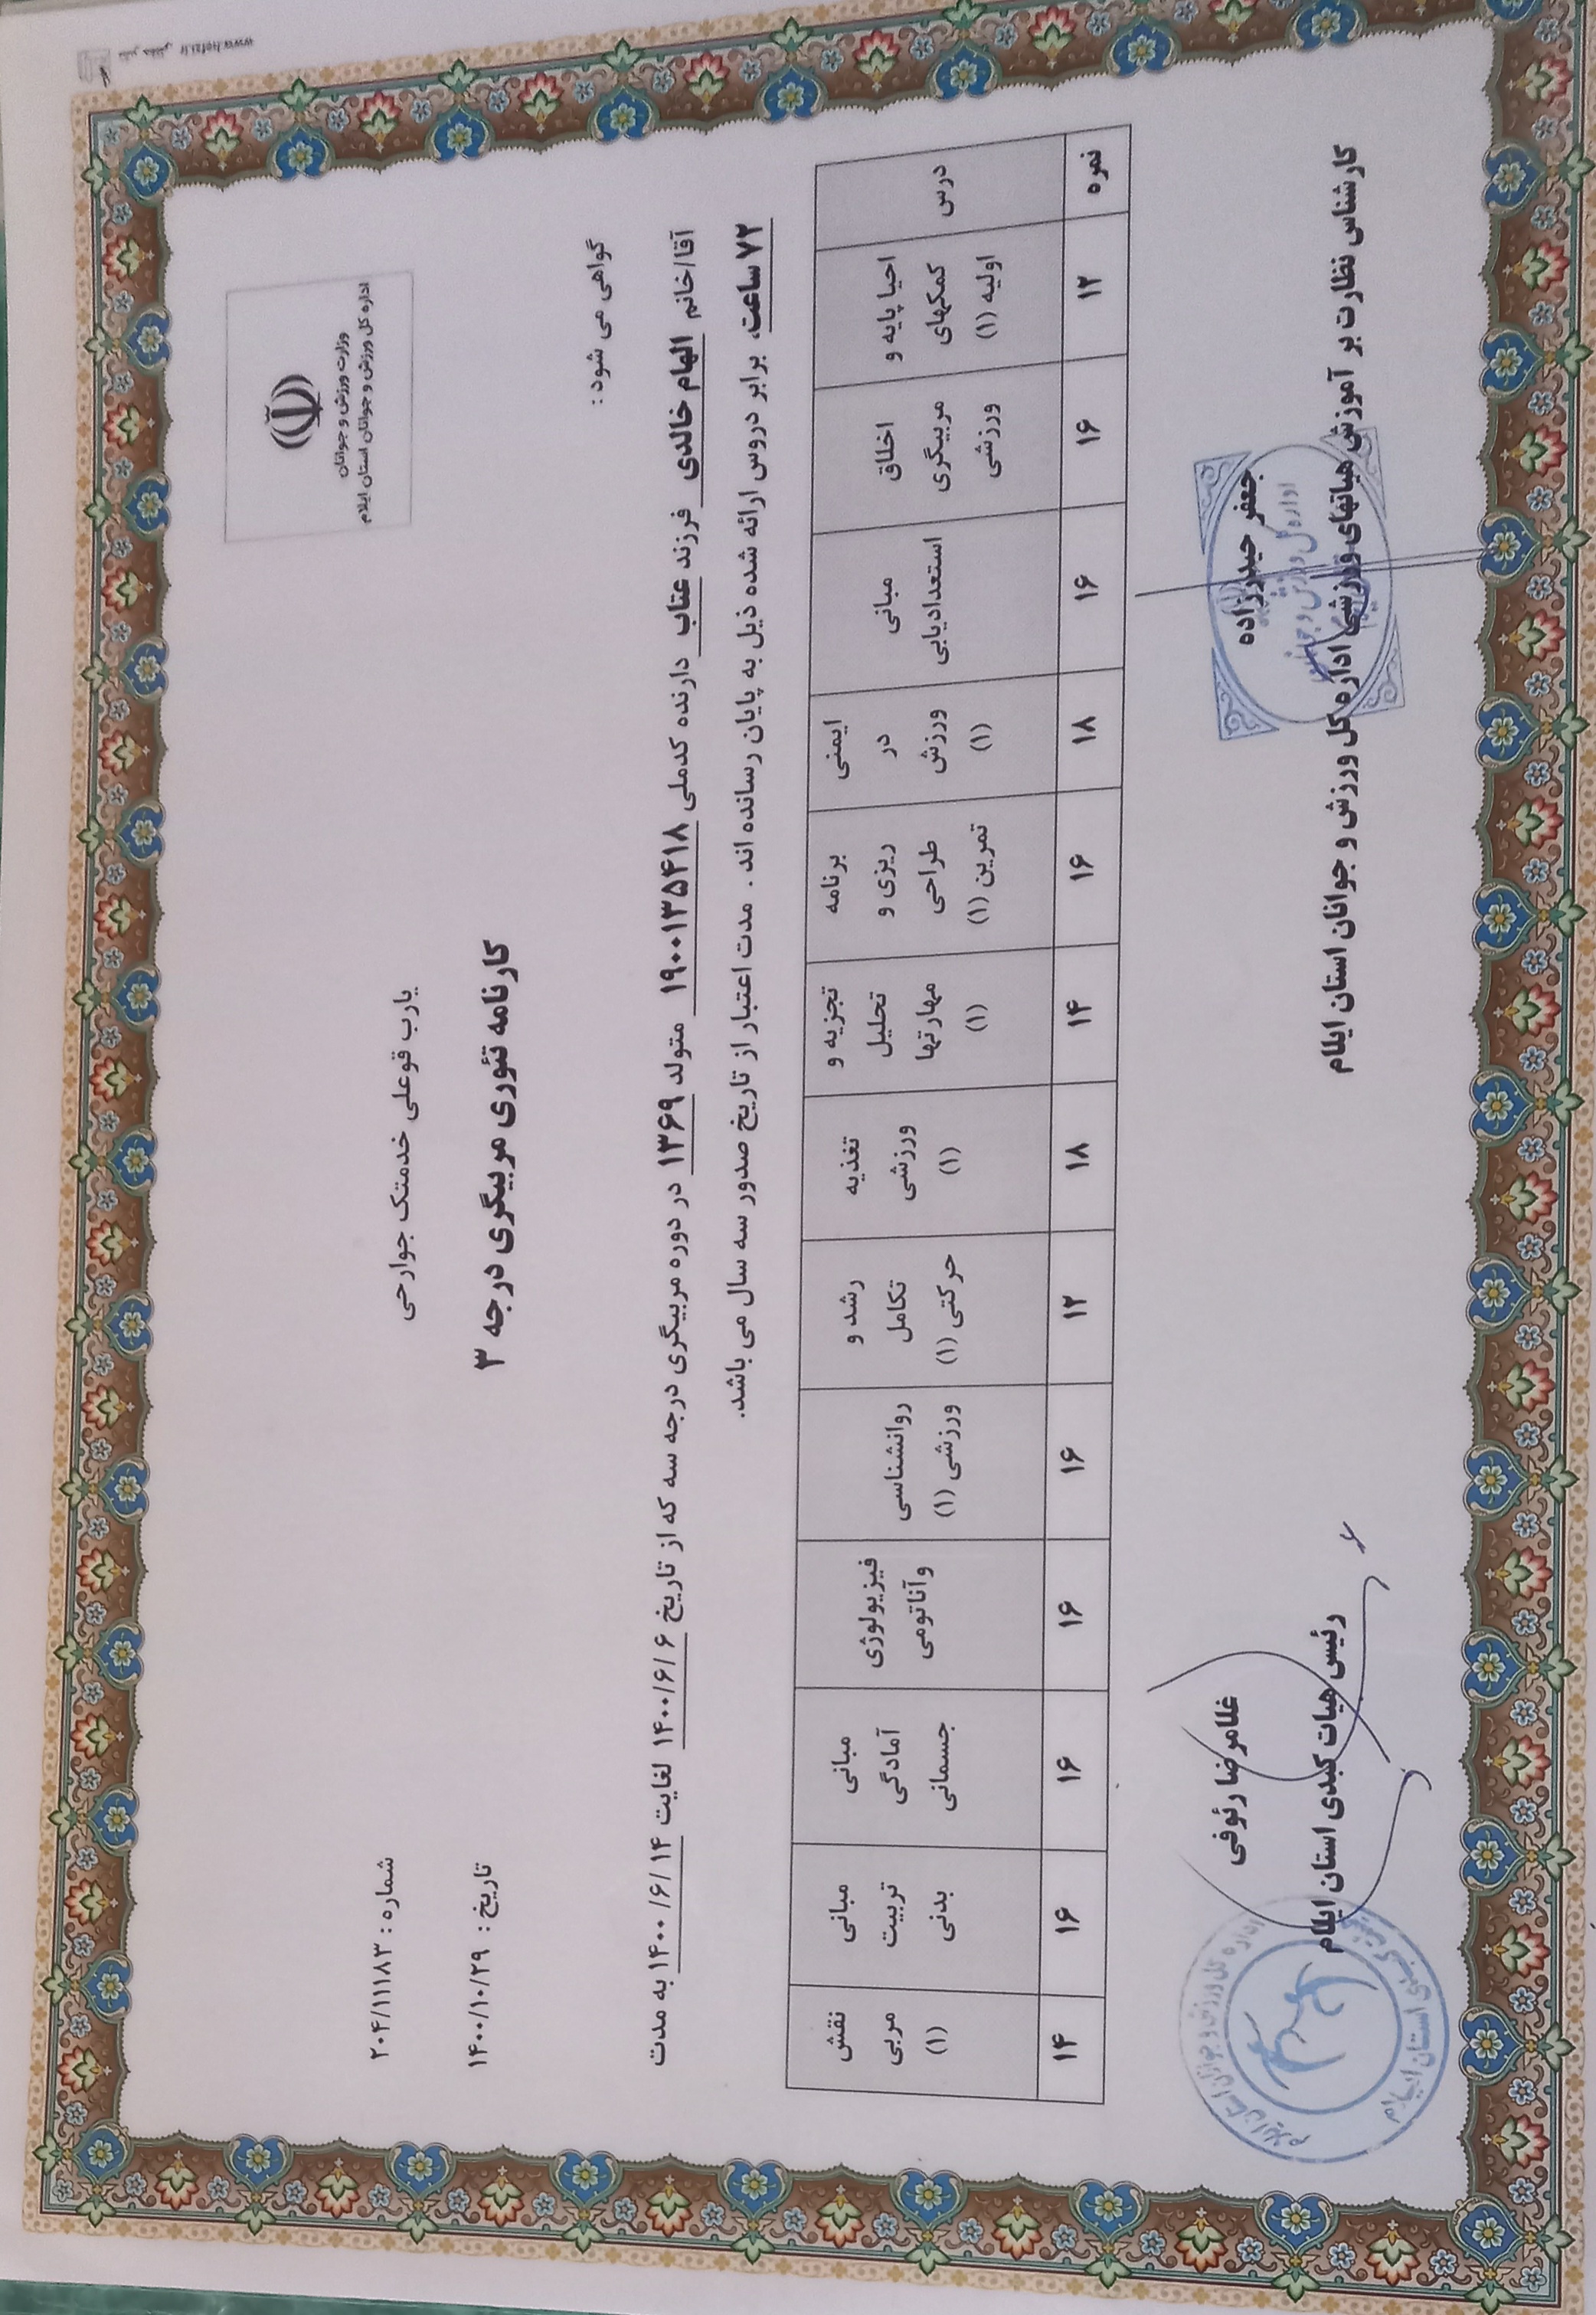 وزارت ورزش و جوانان
اداره کل ورزش و جوانان استان ایلام
یارب قوعلی خدمتک جوارحی
شماره : ۲۰۴/۱۱۱۸۳
کارنامه تئوری مربیگری درجه ۳
تاریخ : ۱۴۰۰/۱۰/۲۹
گواهی می شود :
آقا/خانم الهام خالدی فرزند عتاب دارنده کدملی ۱۹۰۰۱۳۵۴۱۸ متولد ۱۳۶۹ در دوره مربیگری درجه سه که از تاریخ ۱۴۰۰/۶/۶ لغایت ۱۴۰۰/۶/۱۴ به مدت
۷۲ ساعت، برابر دروس ارائه شده ذیل به پایان رسانده اند . مدت اعتبار از تاریخ صدور سه سال می باشد.
درس احیا پایه و کمکهای اولیه (۱) اخلاق مربیگری ورزشی مبانی استعدادیابی ایمنی در ورزش (۱) برنامه ریزی و طراحی تمرین (۱) تجزیه و تحلیل مهارتها (۱) تغذیه ورزشی (۱) رشد و تکامل حرکتی (۱) روانشناسی ورزشی (۱) فیزیولوژی وآناتومی مبانی آمادگی جسمانی مبانی تربیت بدنی نقش مربی (۱)
نمره ۱۲ ۱۶ ۱۶ ۱۸ ۱۶ ۱۴ ۱۸ ۱۲ ۱۶ ۱۶ ۱۶ ۱۶ ۱۴
جعفر حیدرزاده
کارشناس نظارت بر آموزش هیاتهای ورزشی اداره کل ورزش و جوانان استان ایلام
اداره کل ورزش و جوانان
غلامرضا رئوفی
رئیس هیات کبدی استان ایلام
اداره کل ورزش و جوانان استان ایلام
کبدی استان ایلام
www.hefzi.ir